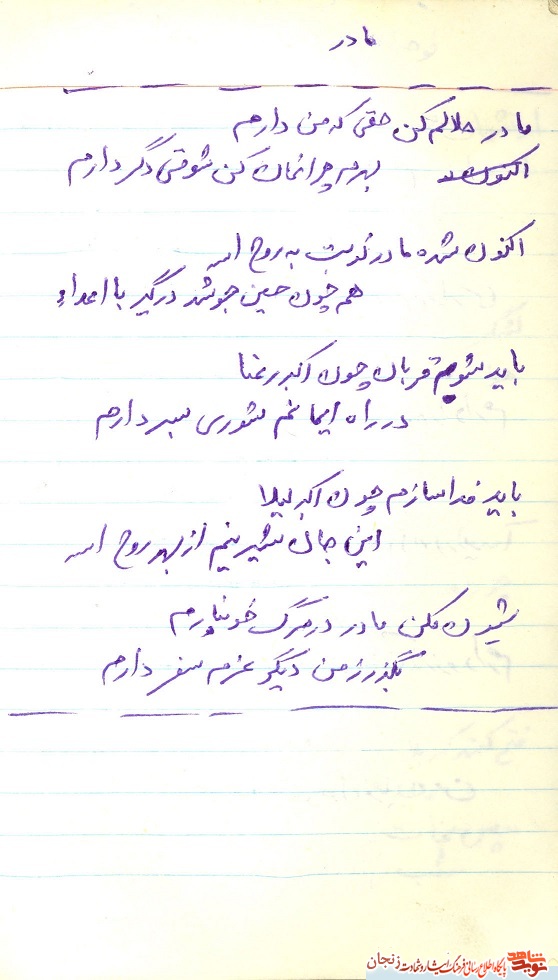 مادر
مادر حلالم کن حقی که من دارم
اکنون بهر چراغان کن شوقی دگر دارم
اکنون شده مادر نوبت به روح اله
هم چون حسین جوشد درگیر با اعداء
باید شوم قربان چون اکبر رعنا
در راه ایمانم شوری بسر دارم
باید فدا سازم چون اکبر لیلا
این جان شیرینم از بهر روح اله
شیون مکن مادر در مرگ خونبارم
بگذر ز من دیگر عزم سفر دارم
نوید شاهد
پایگاه اطلاع رسانی فرهنگ ایثار و شهادت زنجان